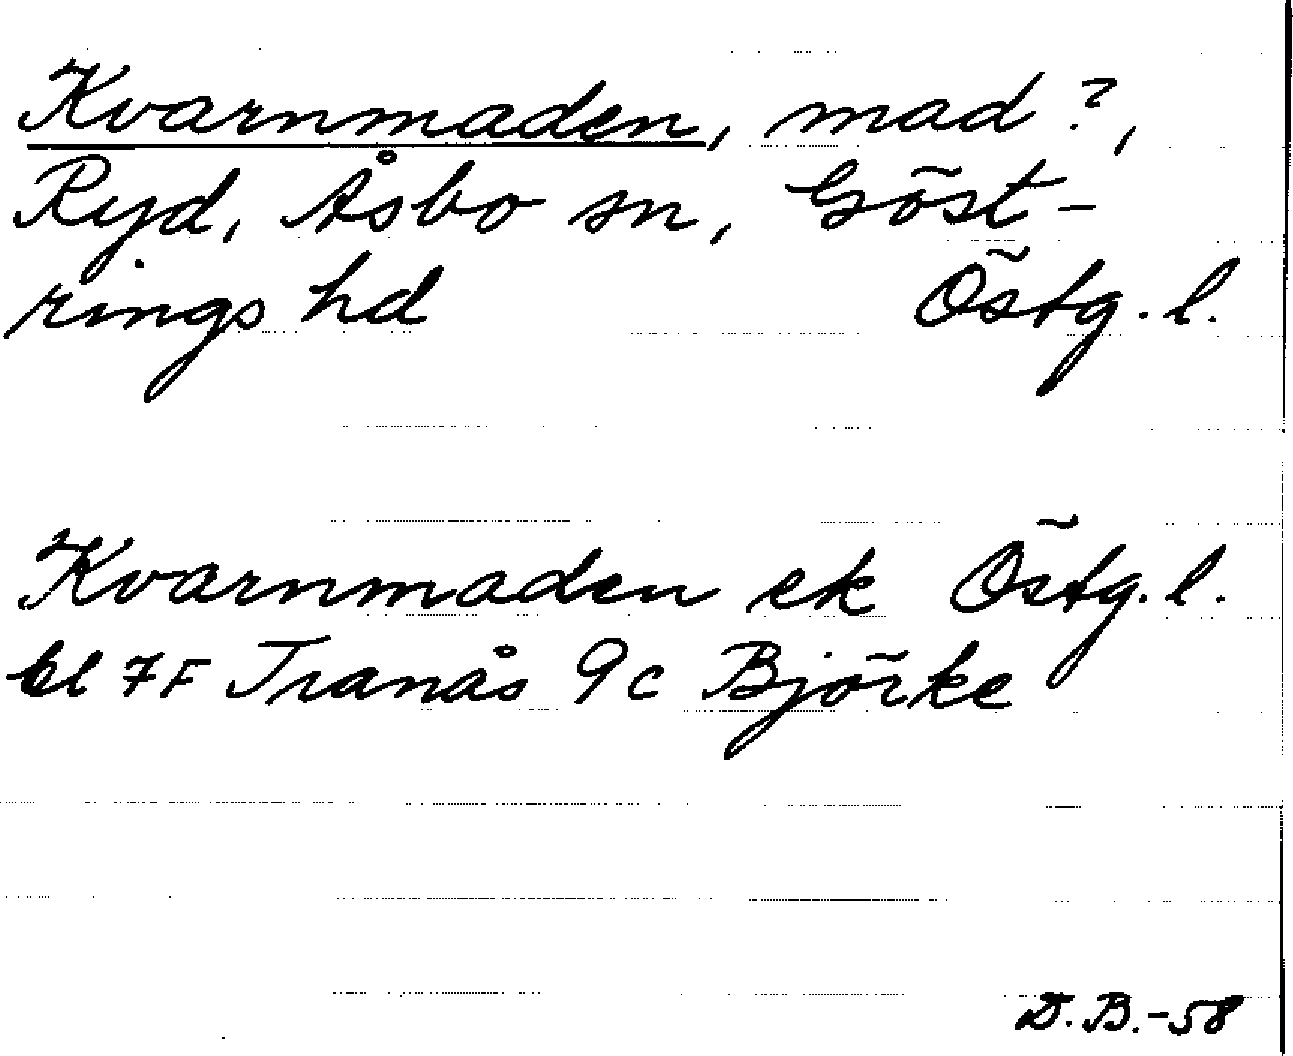 Kvarnmaden, mad?,
Ryd, Åsbo sn, Göst-
rings hd Östg. l.
Kvarnmaden ek Östg. l.
bl 7F Tranås 9c Björke
D.B.-58